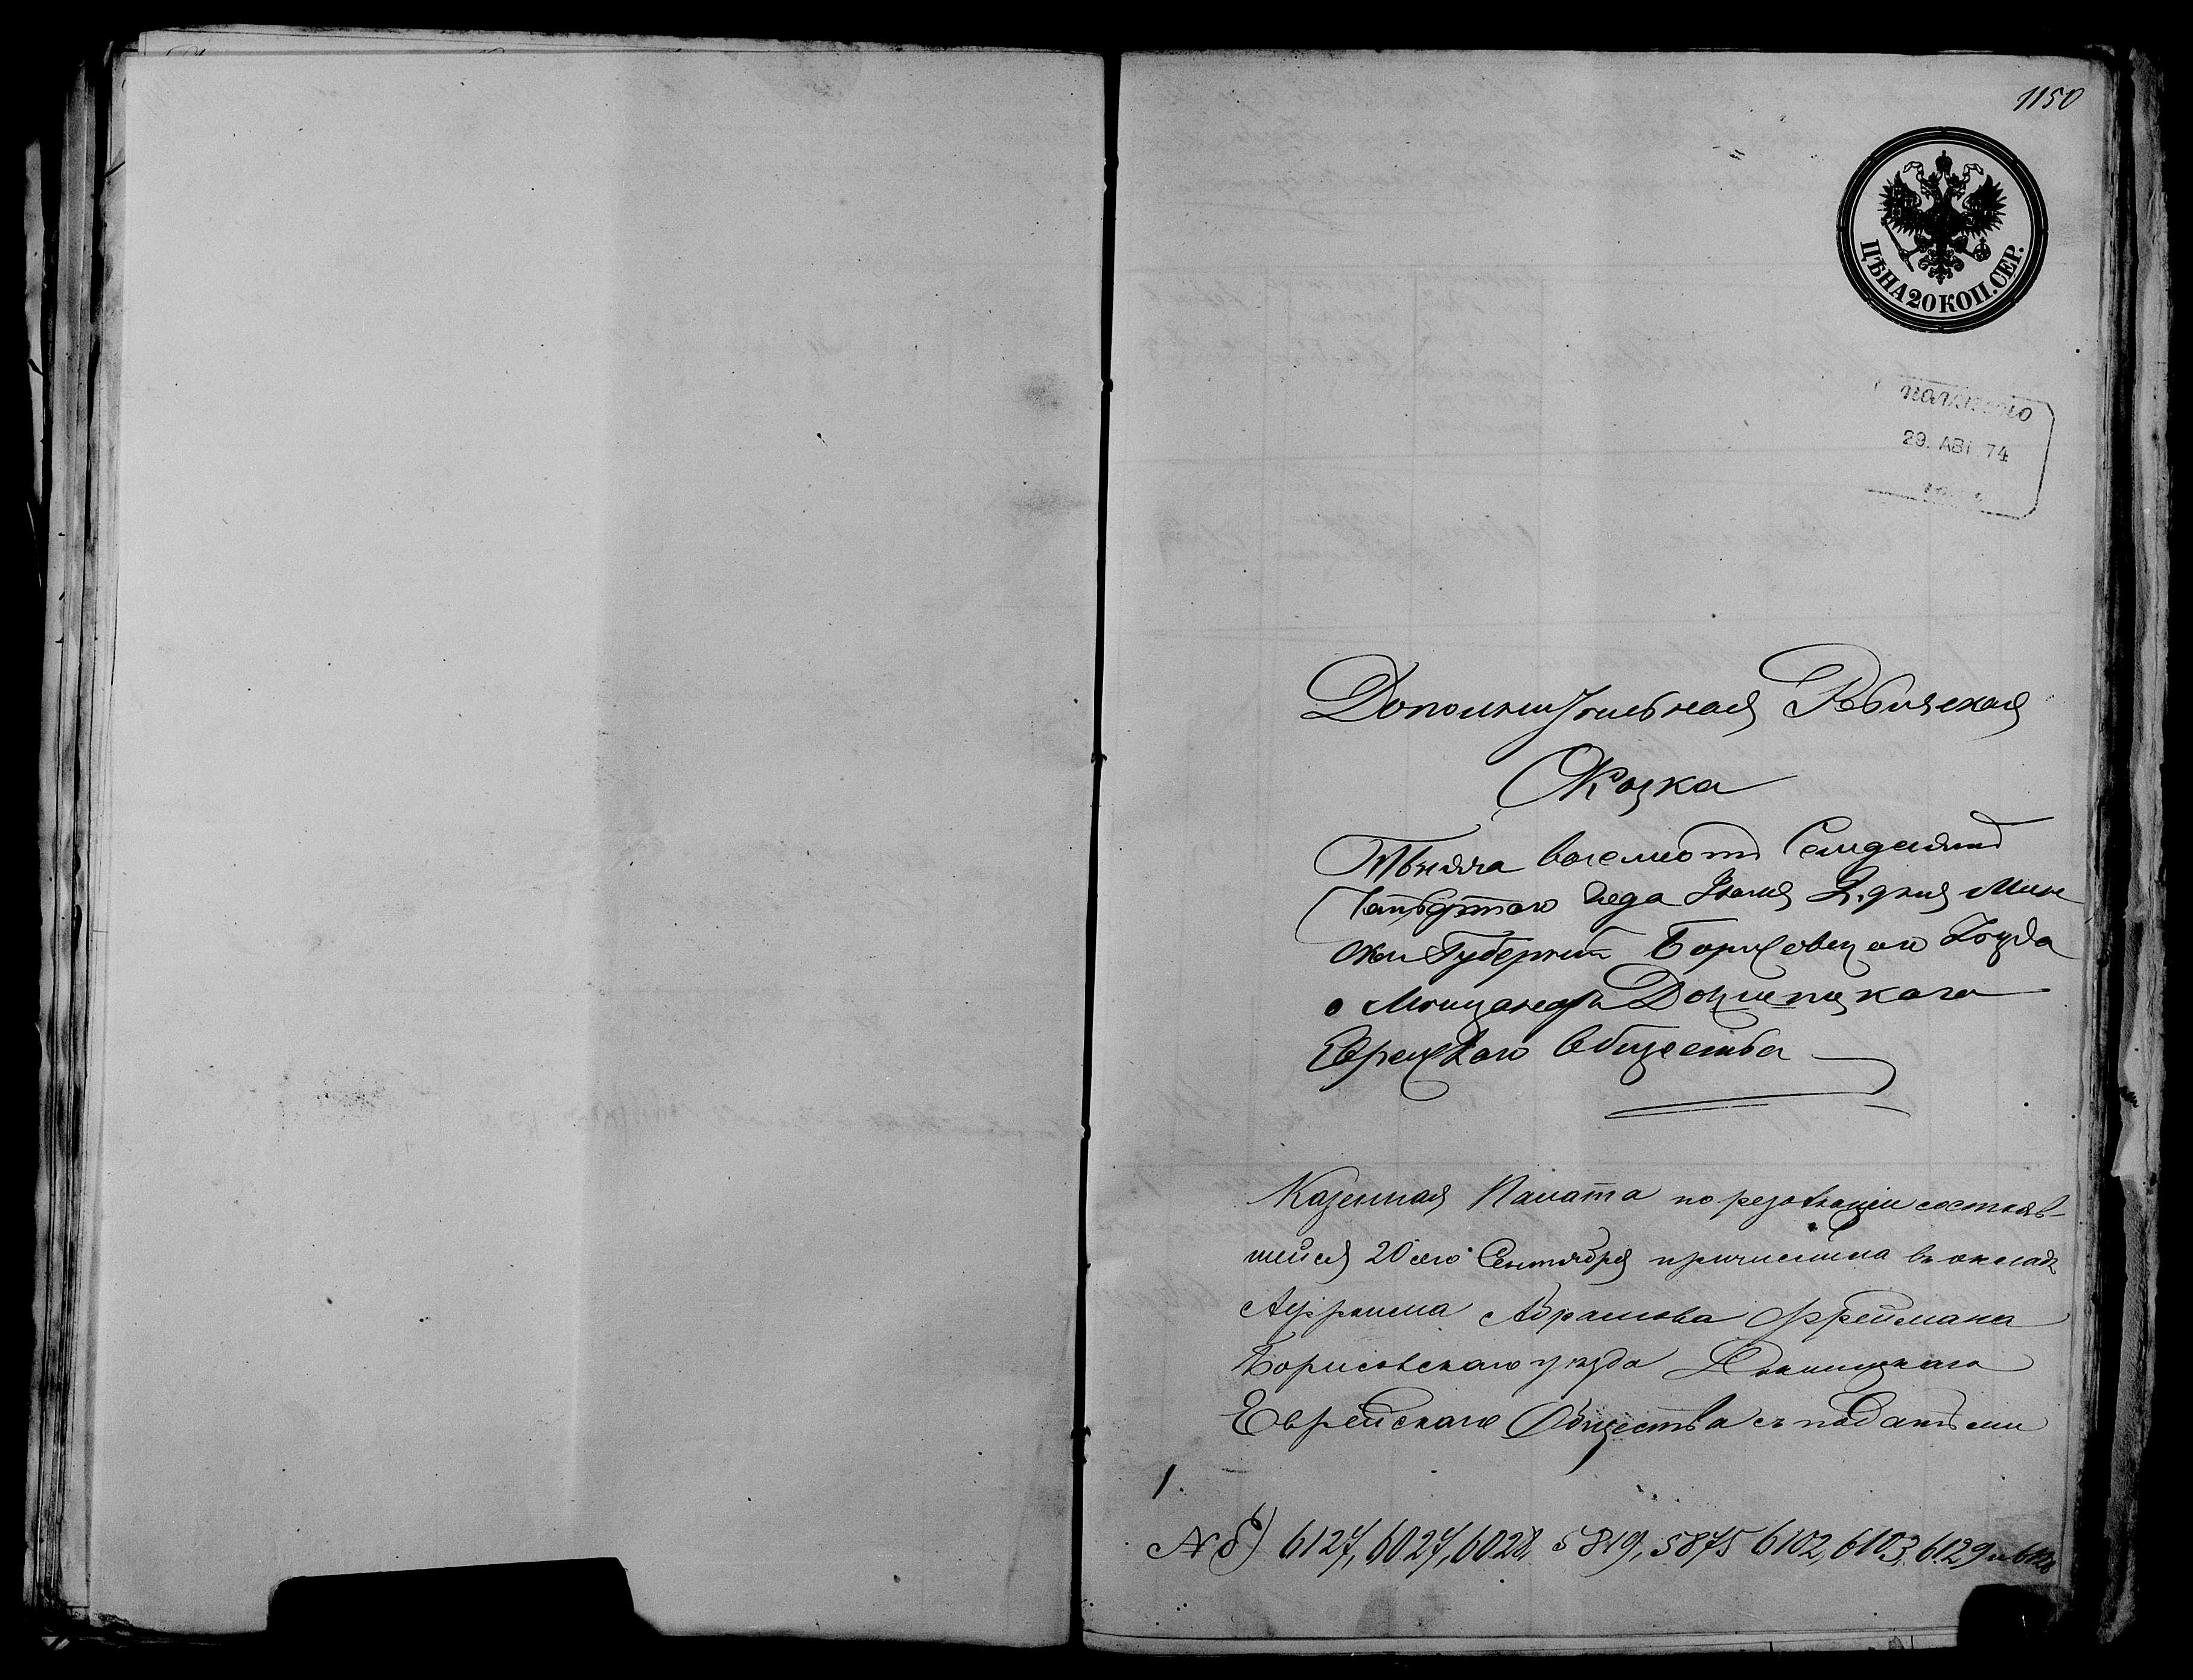 1150
ЦѢНА 20 КОП. СЕР.
29. АВГ 74
Дополнительная Ревизская
Сказка
Тысяча восемсотъ Семдесятъ
Четвертого Года Іюля дня Мин
ской Губерніи Борисовскаго Уѣзда
о Мещанахъ Докшицкаго
Еврейскаго Общества
Казенная Палата по резолюціи состояв-
шейся 20 сего Сентября причислила въ окладъ
Абрамова Фреймана
Борисовскаго уѣзда Докшицкаго
Еврейскаго Общества съ податьми
1.
№ 6) 6127, 6027, 6028, 5819, 5875 6102, 6103, 6129 и